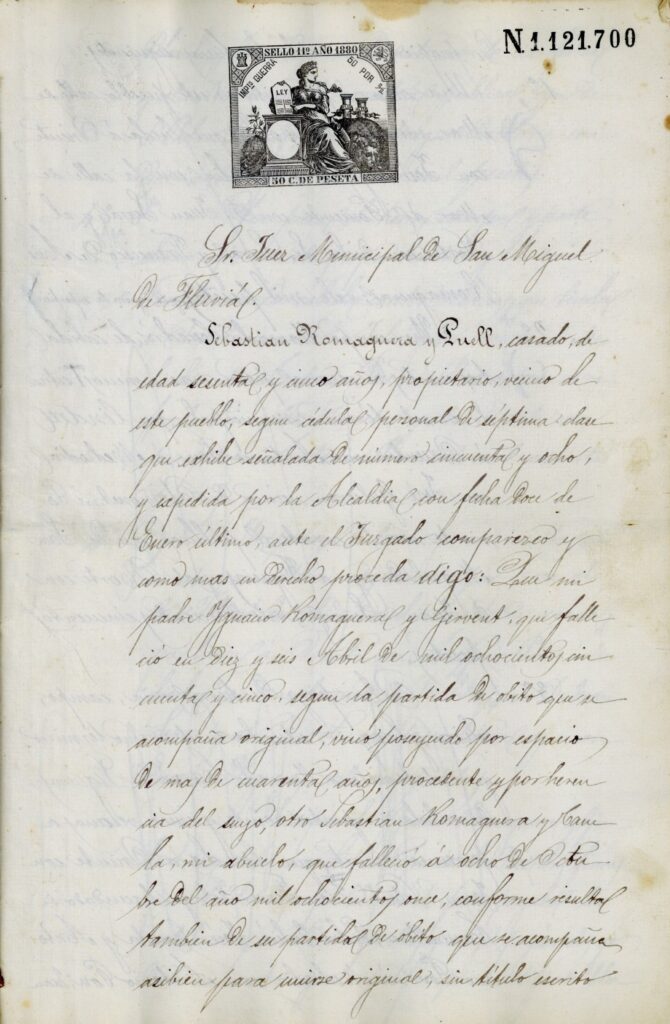 N 1.121.700
SELLO 11º AÑO 1880
IMPTO GUERRA
50 POR %
LEY
50 C. DE PESETA
Sr. Juez Municipal de San Miguel
de Fluviá.
Sebastian Romaguera y Puell, casado, de
edad sesenta y cinco años, propietario, vecino de
este pueblo, segun cédula personal de séptima clase
que exhibe señalada de número cincuenta y ocho,
y espedida por la Alcaldia con fecha doce de
Enero último, ante el Juzgado comparezco y
como mas en derecho proceda digo: Que mi
padre Ygnacio Romaguera y Girvent, que falle
ció en diez y seis Abril de mil ochocientos cin
cuenta y cinco, segun la partida de óbito que se
acompaña original, vino poseyendo por espacio
de mas de cuarenta años, procedente y por heren
cia del suyo, otro Sebastian Romaguera y
mi abuelo, que falleció á ocho de Octu
bre del año mil ochocientos once, conforme resulta
tambien de su partida de óbito que se acompaña
asibien para unirse original, sin título escrito